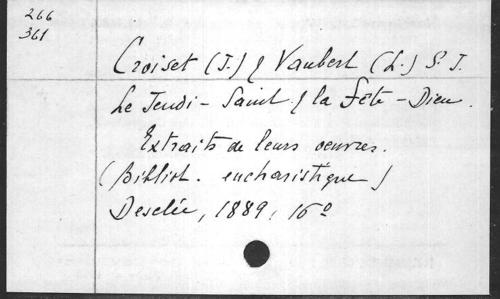 266
361
Croiset (J.) & Vaubert (L.) S. J.
Le Jeudi-Saint & la Fête-Dieu.
Extraits de leurs oeuvres.
(Bibliot. eucharistique)
Desclée, 1889, 16º